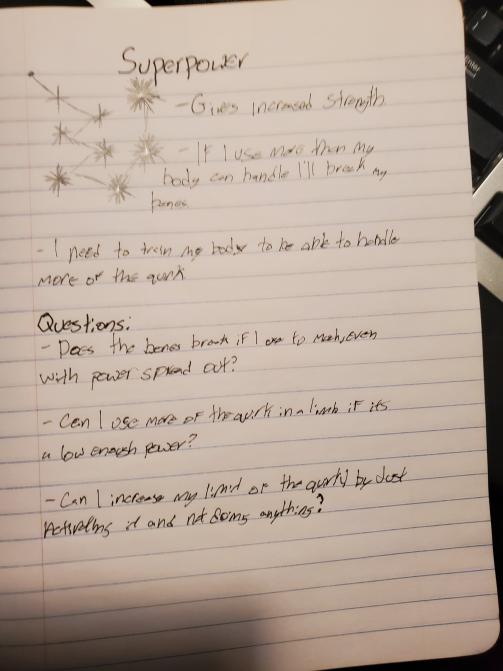 Superpower
- Gives increased strength
- If I use more then my
body can handle I'll break my
bones
- I need to train my body to be able to handle
more of the quirk
Questions:
- Does the bones break if I use to much, even
with power spread out?
- Can I use more of the quirk in a limb if its
a low enough power?
- Can I increase my limit of the quirk by Just
Activating it and not doing anything?